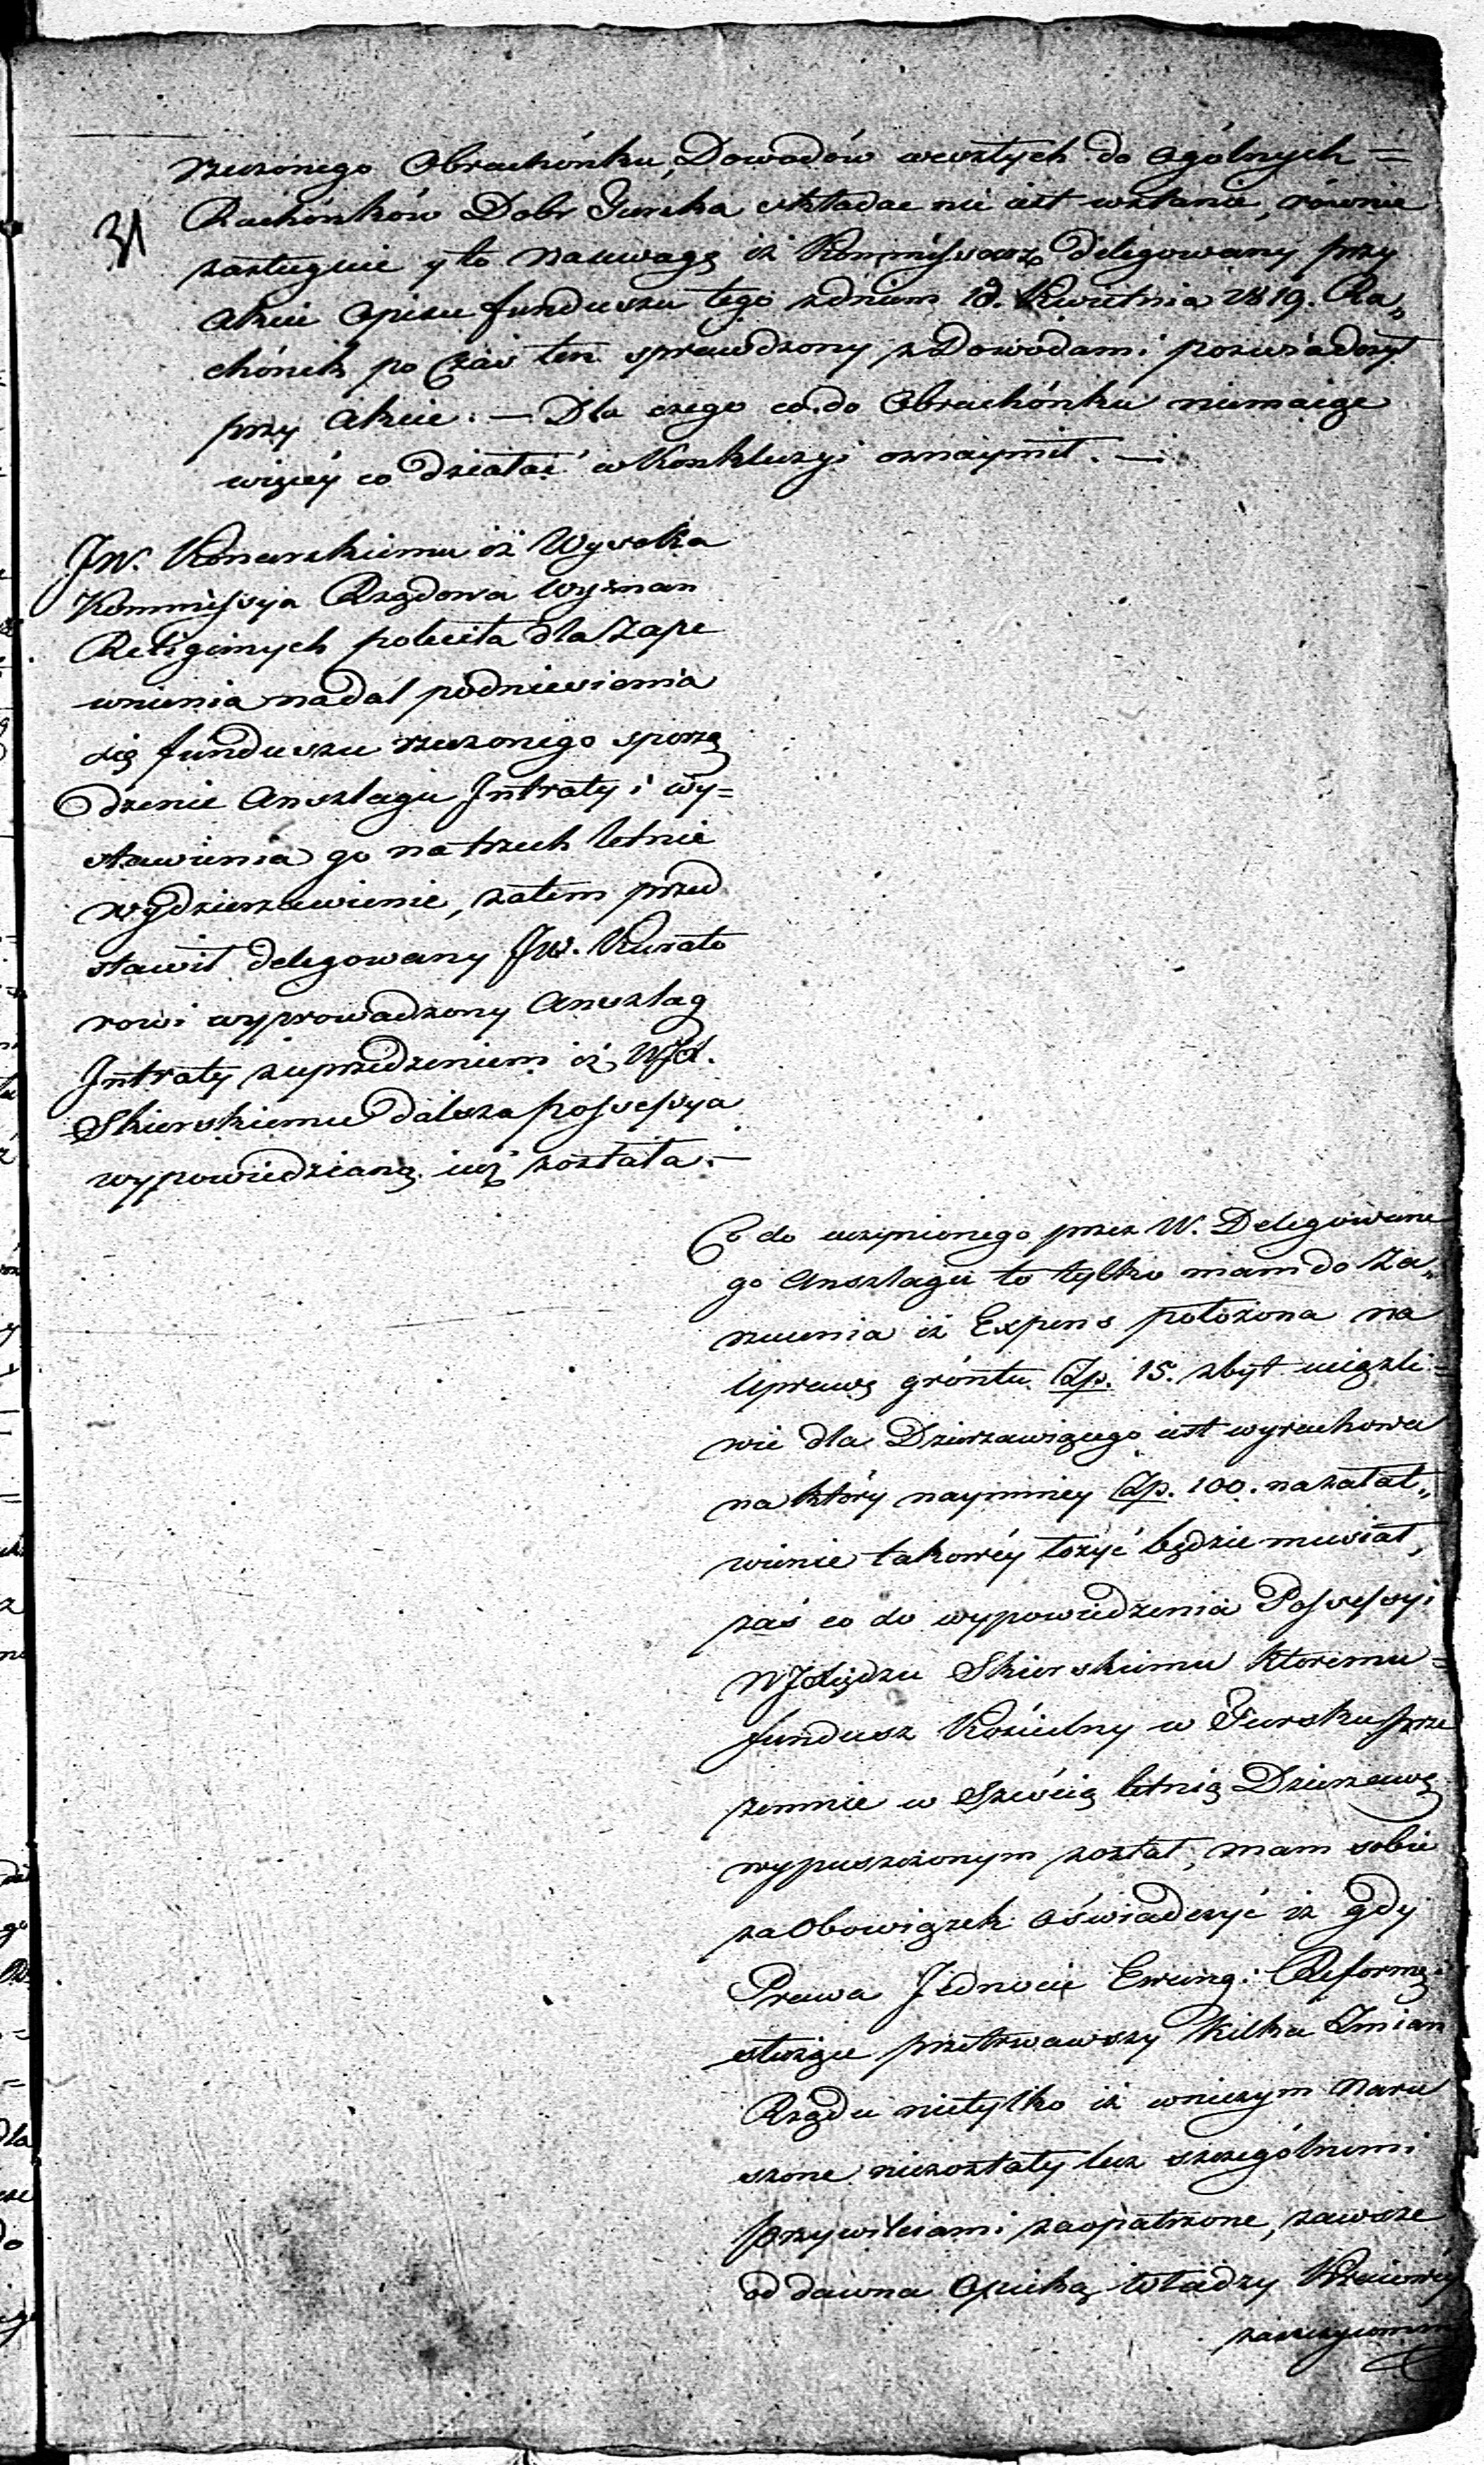 rzeczonego Obrachónku, Dowodów weszłych do ogólnych =
31
Rachónków Dobr Gurska składac nie iest wstanie, równie
zasługuie y to nauwagę iż Kommissarz Delegowany przy
akcie opisu funduszu tego zdniem 18. Kwietnia 1819. Ra„
chónek po Czas ten sprawdzony z Dowodami poswiadczył
przy akcie. — Dla czego co do Obrachónku niemaiąc
więcéy co działać w Konkluzyi oznaymił. —
JW. Konarskiemu iż Wysoka
Kommissyja Rządowa Wyznan
Religiinych poleciła dla Zape
wnienia nadal podniesienia
się funduszu rzeczonego sporzą
dzenie Anszlagu Jntraty i wy=
stawienia go na trzech letnie
wydzierzawienie, zatem przed
stawił delegowany JW. Kurato
rowi wyprowadzony Anszlag
Jntraty zuprzedzeniem iż WJX.
Skierskiemu dalsza possessya
wypowiedzianą iuż została. —
Co do uczynionego przez W. Delegowane
go Anszlagu to tylko mam do Za„
rzucenia iż Expens położona na
Uprawę gróntu Zp. 15. zbyt uciążli=
wie dla Dzierzawiącego iest wyrachowa
na który naymniey Zp. 100. na załat„
wienie takowéy łożyć będzie musiał,
zaś co do wypowiedzenia Possessyi
WJXiędzu Skierskiemu ktoremu =
fundusz Kościelny w Gursku prze
zemnie w Sześcią letnią Dzierzawę
wypuszczonym został, mam sobie
za Obowiązek oświadczyć iż gdy
Prawa Jednocie Ewang: Reformę:
służące przetrwawszy kilka Zmian
Rządu nietylko iż wniczym naru
szone niezostały lecz szczególnemi
przywileiami zaopatrzone, zawsze
od dawna Opieką władzy Kraiowéy